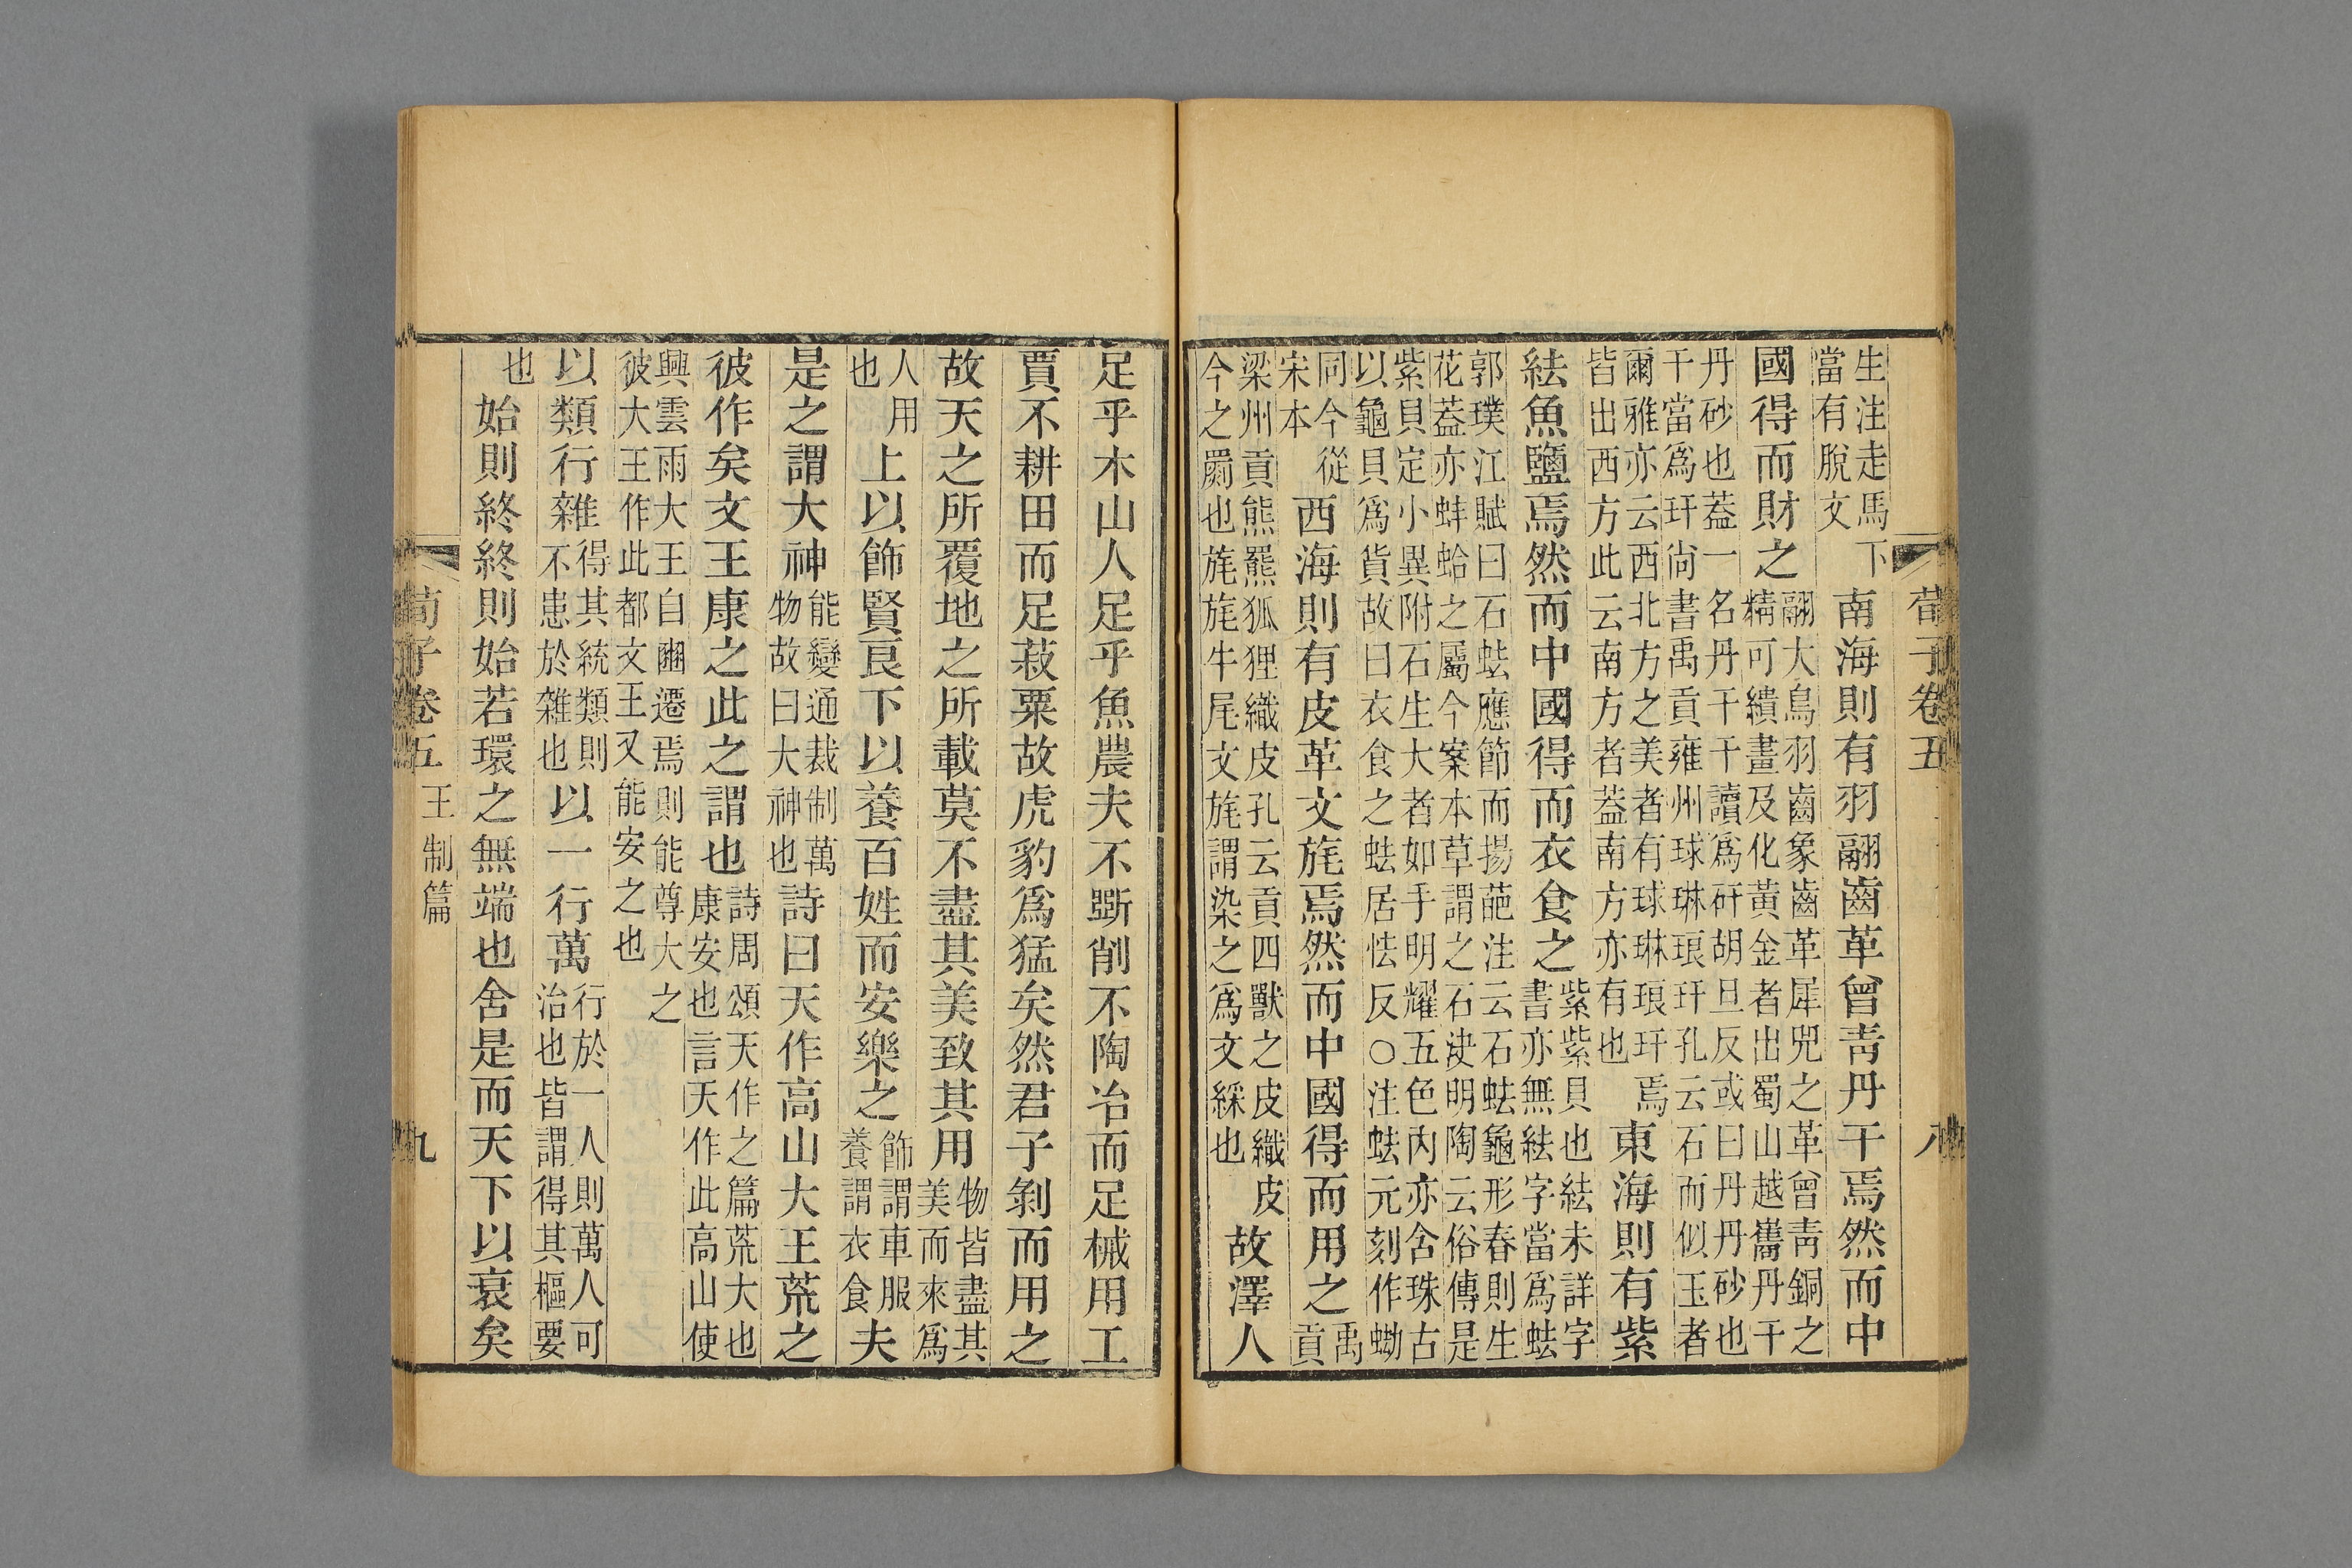 荀子卷五
八
生注走馬下
當有脫文
南海則有羽翮齒革曾靑丹干焉然而中
國得而財之
翮大鳥羽齒象齒革犀兕之革曾靑銅之
精可繢畫及化黃金者出蜀山越嶲丹干
丹砂也葢一名丹干干讀爲矸胡旦反或曰丹丹砂也
干當爲玕尙書禹貢雍州球琳琅玕孔云石而似玉者
爾雅亦云西北方之美者有球琳琅玕焉
皆出西方此云南方者葢南方亦有也
東海則有紫
紶魚鹽焉然而中國得而衣食之
紫紫貝也紶未詳字
書亦無紶字當爲𧉧
郭璞江賦曰石𧉧應節而揚葩注云石𧉧龜形春則生
花葢亦蚌蛤之屬今案本草謂之石決明陶云俗傳是
紫貝定小異附石生大者如手明耀五色內亦含珠古
以龜貝爲貨故曰衣食之𧉧居怯反○注𧉧元刻作蜐
同今從
宋本
西海則有皮革文旄焉然而中國得而用之
禹
貢
梁州貢熊羆狐狸織皮孔云貢四獸之皮織皮
今之罽也旄旄牛尾文旄謂染之爲文綵也
故澤人
足乎木山人足乎魚農夫不斲削不陶冶而足械用工
賈不耕田而足菽粟故虎豹爲猛矣然君子剝而用之
故天之所覆地之所載莫不盡其美致其用
物皆盡其
美而來爲
人用
也
上以飾賢良下以養百姓而安樂之
飾謂車服
養謂衣食
夫
是之謂大神
能變通裁制萬
物故曰大神也
詩曰天作高山大王荒之
彼作矣文王康之此之謂也
詩周頌天作之篇荒大也
康安也言天作此高山使
興雲雨大王自豳遷焉則能尊大之
彼大王作此都文王又能安之也
以類行雜
得其統類則
不患於雜也
以一行萬
行於一人則萬人可
治也皆謂得其樞要
也
始則終終則始若環之無端也舍是而天下以衰矣
荀子卷五
王制篇
九